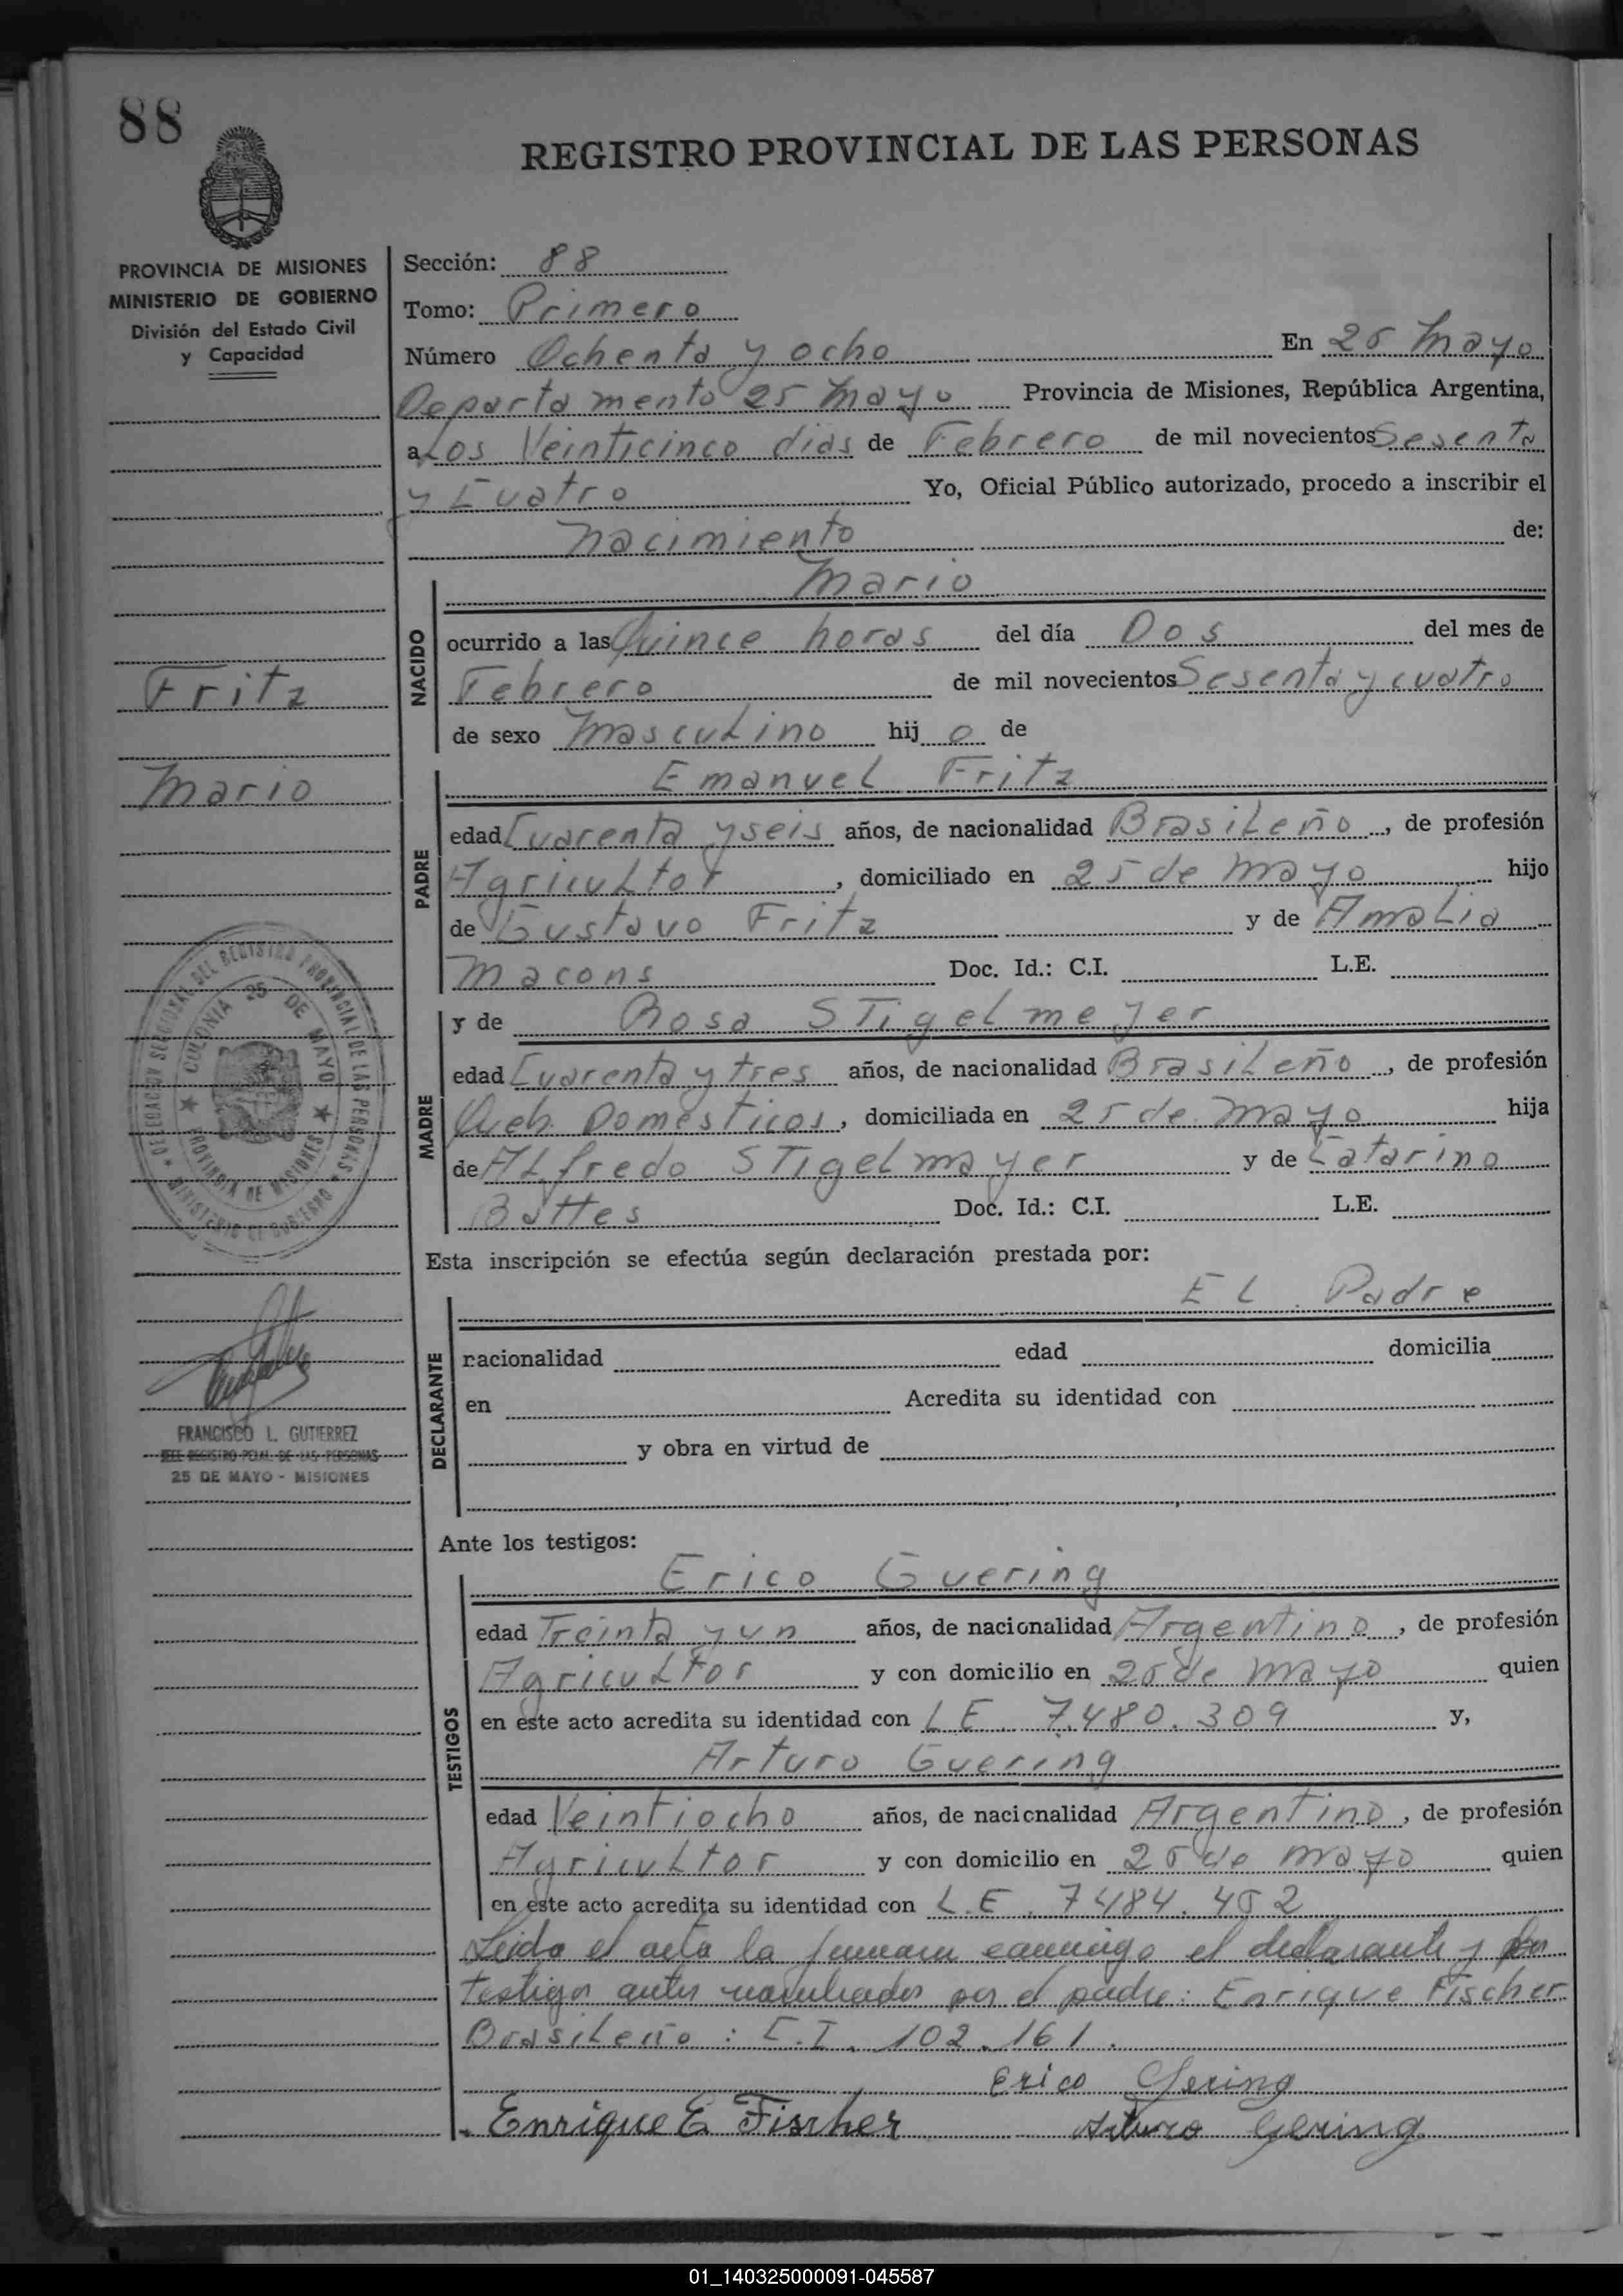 88
REGISTRO PROVINCIAL DE LAS PERSONAS
PROVINCIA DE MISIONES
MINISTERIO DE GOBIERNO
División del Estado Civil
y Capacidad
Sección: 88
Tomo: Primero
Número Ochenta y ocho En 25 Mayo
Departamento 25 Mayo Provincia de Misiones, República Argentina,
a Los Veinticinco dias de Febrero de mil novecientos Sesenta
y Cuatro Yo, Oficial Público autorizado, procedo a inscribir el
nacimiento de:
Mario
NACIDO
ocurrido a las Quince horas del día Dos del mes de
Febrero de mil novecientos Sesenta y cuatro
de sexo Masculino hij o de
Fritz
Mario
Emanuel Fritz
PADRE
edad Cuarenta y seis años, de nacionalidad Brasileño, de profesión
Agricultor, domiciliado en 25 de Mayo hijo
de Gustavo Fritz y de Amalia
Macons Doc. Id.: C.I. L.E.
y de Rosa STigelmeyer
MADRE
edad Cuarenta y tres años, de nacionalidad Brasileño, de profesión
Queh. Domésticos, domiciliada en 25 de Mayo hija
de Alfredo STigelmayer y de Catarino
Doc. Id.: C.I. L.E.
DELEGACION SECCIONAL DEL REGISTRO PROVINCIAL DE LAS PERSONAS
MINISTERIO DE GOBIERNO
COLONIA 25 DE MAYO
PROVINCIA DE MISIONES
Esta inscripción se efectúa según declaración prestada por:
El Padre
DECLARANTE
nacionalidad edad domicilia
en Acredita su identidad con
y obra en virtud de
FRANCISCO L. GUTIERREZ
JEFE REGISTRO PCIAL. DE LAS PERSONAS
25 DE MAYO - MISIONES
Ante los testigos:
Erico Guering
TESTIGOS
edad Treinta y un años, de nacionalidad Argentino, de profesión
Agricultor y con domicilio en 25 de Mayo quien
en este acto acredita su identidad con L E. 7.480.309 y,
Arturo Guering
edad Veintiocho años, de nacionalidad Argentino, de profesión
Agricultor y con domicilio en 25 de Mayo quien
en este acto acredita su identidad con L.E. 7484.452
Leida el acta la firman conmigo el declarante y los
testigos antes por el padre: Enrique Fischer
Brasileño: C.I. 102.161.
Erico Gering
Enrique E Fischer Arturo Gering
01_140325000091-045587